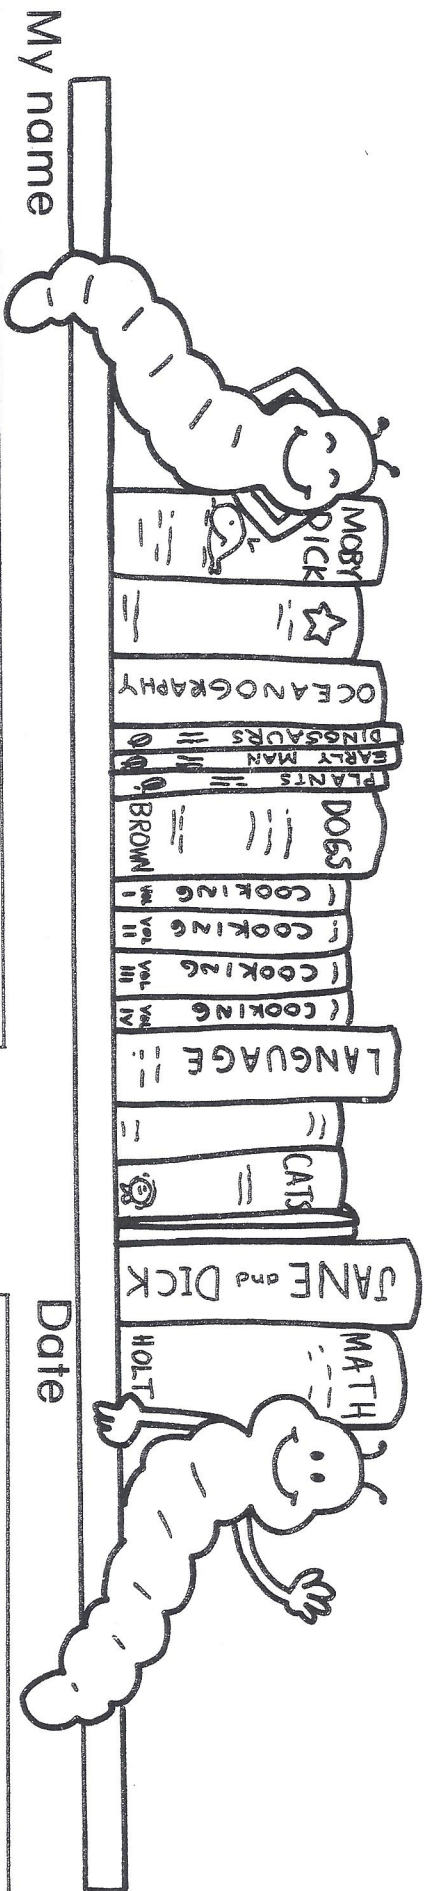 MOBY
DICK
OCEANOGRAPHY
DINOSAURS
EARLY MAN
PLANTS
DOGS
BROWN
COOKING
VOL
I
COOKING
VOL
II
COOKING
VOL
III
COOKING
VOL
IV
LANGUAGE
CATS
JANE and DICK
MATH
HOLT
My name
Date